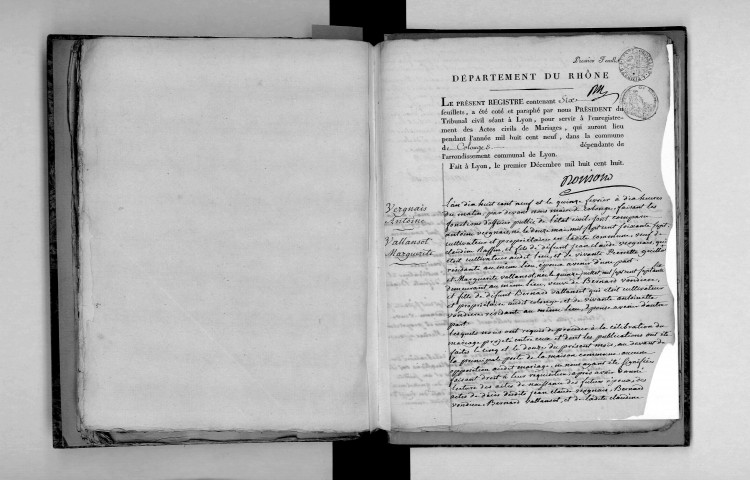 Premier Feuillet
DÉPARTEMENT DU RHÔNE
LE PRÉSENT REGISTRE contenant Six
feuillets, a été coté et paraphé par nous PRÉSIDENT du
Tribunal civil séant à Lyon, pour servir à l'enregistre-
ment des Actes civils de Mariages, qui auront lieu
pendant l'année mil huit cent neuf, dans la commune
de Colonges dépendante de
l'arrondissement communal de Lyon.
Fait à Lyon, le premier Décembre mil huit cent huit.
Vergnais
Antoine
Vallansot
Marguerite
L'an dix huit cent neuf et le quinze fevrier à dix heures
du matin, par devant nous maire de colonge, faisant les
fonctions d'officier public de l'état civil, sont comparu
antoine vergnais, né le douze mai mil sept cent soixante sept
cultivateur et propriétaire en ladite commune, veuf de
claudine Raffin, et fils de défunt jean claude vergnais, qui
était cultivateur audit lieu, et de vivante Pierrette
résidante au même lieu, époux avenir d'une part
et Marguerite vallansot, née le quinze juillet mil sept cent septante
demeurant au même lieu, veuve de Bernard vondiere,
et fille de défunt Bernard vallansot qui était cultivateur
et propriétaire audit colonge, et de vivante antoinette
vondiere, résidante au même lieu, épouse avenir d'autre
part
Lesquels nous ont requis de procéder à la célébration du
mariage projeté entre eux et dont les publications ont été
faites le cinq et le douze du présent mois, au devant de
la principale porte de la maison commune, aucune
opposition audit mariage, ne nous ayant été signifiée
faisant droit à leur requisition, après avoir donné
lecture des actes de naissance des futurs époux, des
actes de décès desdits jean claude vergnais, Bernard
vondiere, Bernard vallansot, et de ladite claudine